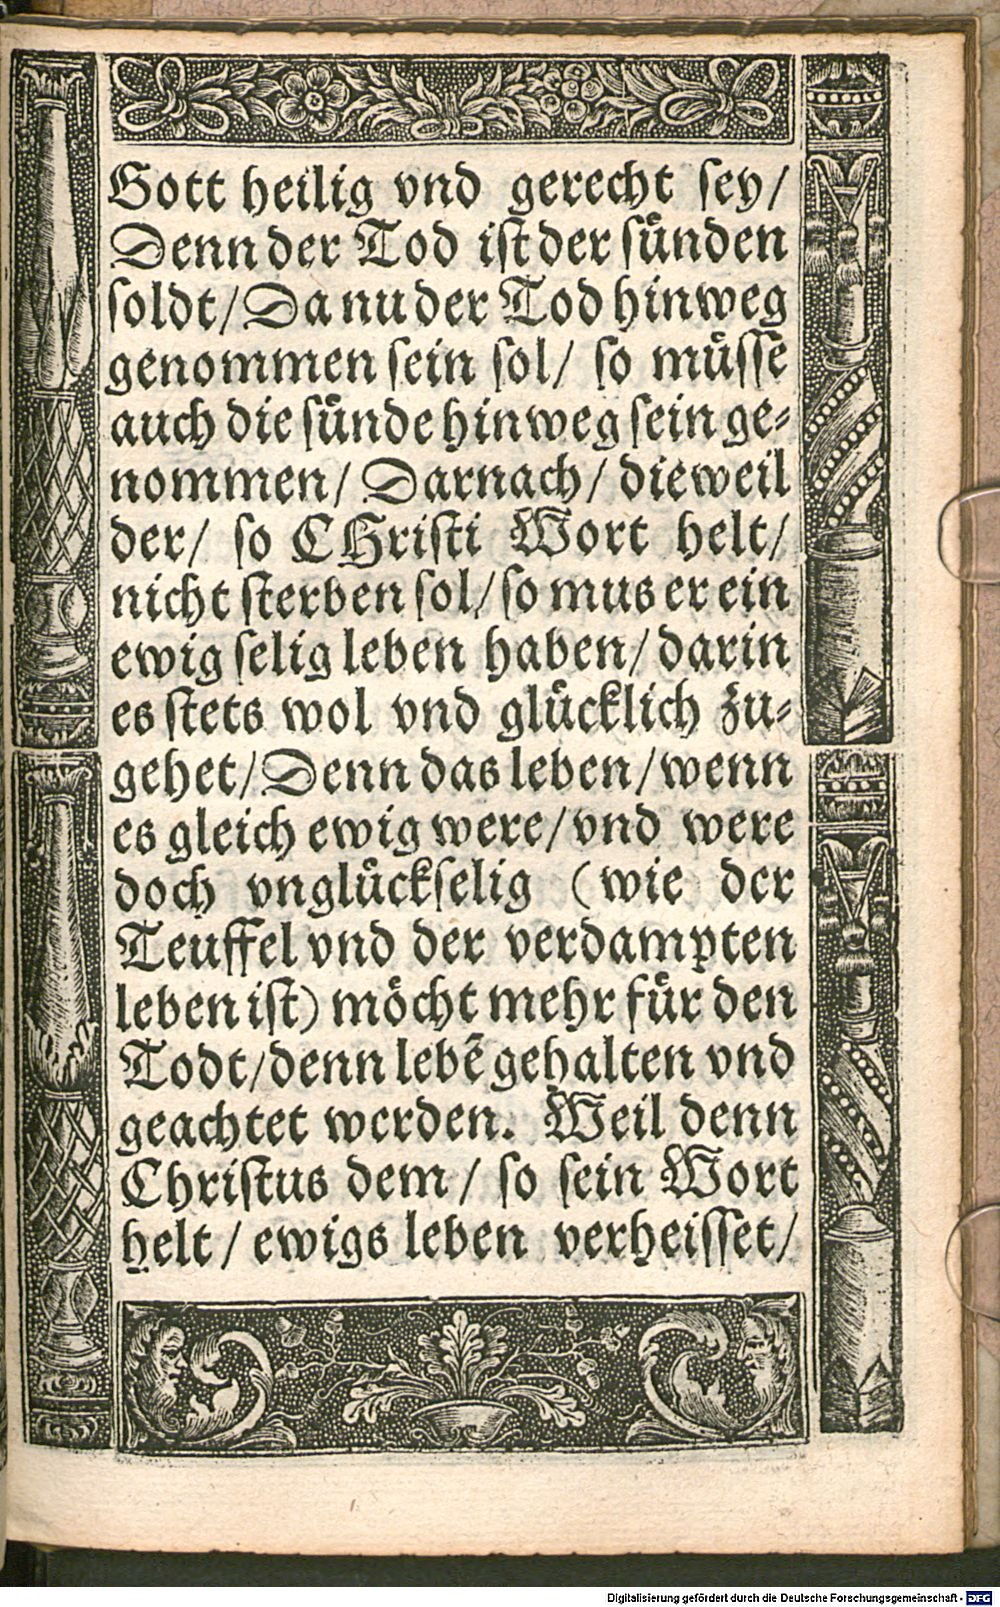 Gott heilig vnd gerecht sey/
Denn der Tod ist der sünden
soldt/ Da nu der Tod hinweg
genommen sein sol/ so müssē
auch die sünde hinweg sein ge-
nommen/ Darnach/ dieweil
der/ so CHristi Wort helt/
nicht sterben sol/ so mus er ein
ewig selig leben haben/ darin
es stets wol vnd glücklich zu-
gehet/ Denn das leben/ wenn
es gleich ewig were/ vnd were
doch vnglückselig (wie der
Teuffel vnd der verdampten
leben ist) möcht mehr für den
Todt/ denn lebē gehalten vnd
geachtet werden. Weil denn
Christus dem/ so sein Wort
helt/ ewigs leben verheisset/
Digitalisierung gefördert durch die Deutsche Forschungsgemeinschaft - DFG